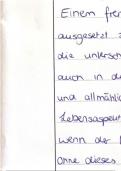 Einem fre
ausgesetzt
die untersch
auch in d
und allmähli
Lebensaspekt
wenn der
Ohne dieses